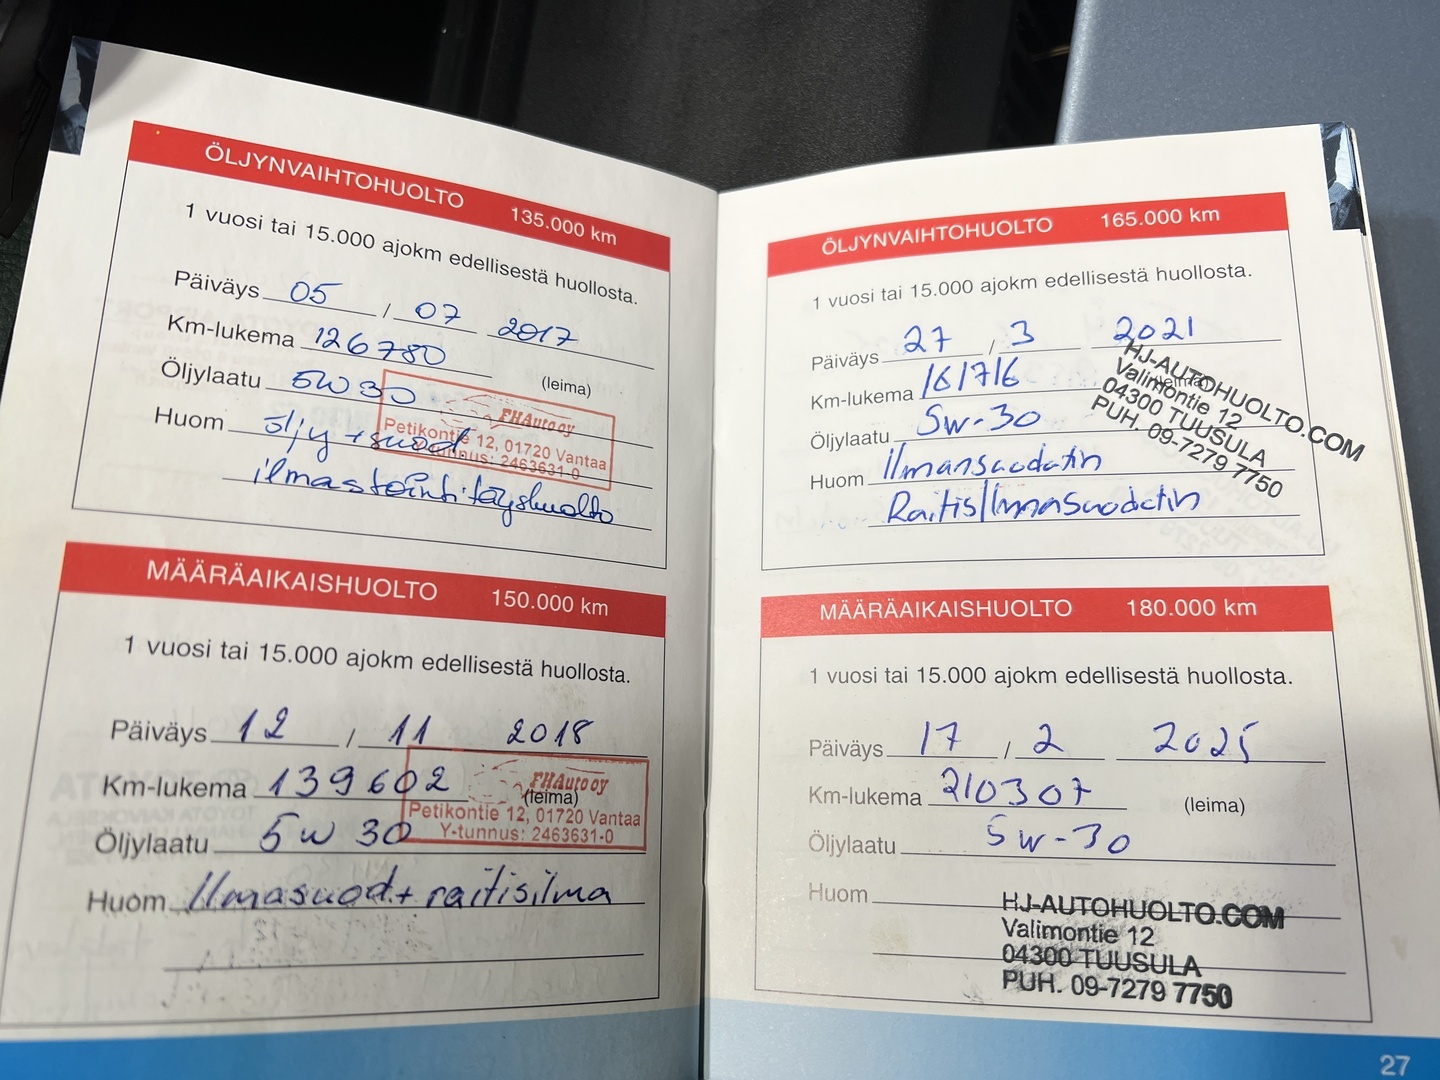 ÖLJYNVAIHTOHUOLTO 135.000 km
1 vuosi tai 15.000 ajokm edellisestä huollosta.
Päiväys 05 / 07 2017
Km-lukema 126780
Öljylaatu 5W30 (leima)
Huom öljy + suod.
ilmastointi täyshuolto
FHAuto oy
Petikontie 12, 01720 Vantaa
Y-tunnus: 2463631-0
MÄÄRÄAIKAISHUOLTO 150.000 km
1 vuosi tai 15.000 ajokm edellisestä huollosta.
Päiväys 12 / 11 2018
Km-lukema 139602
(leima)
Öljylaatu 5W30
Huom Ilmasuod.+ raitisilma
FHAuto oy
Petikontie 12, 01720 Vantaa
Y-tunnus: 2463631-0
ÖLJYNVAIHTOHUOLTO 165.000 km
1 vuosi tai 15.000 ajokm edellisestä huollosta.
Päiväys 27 / 3 2021
Km-lukema 161716 (leima)
Öljylaatu 5w-30
Huom Ilmansuodatin
Raitis/Imasuodatin
HJ-AUTOHUOLTO.COM
Valimontie 12
04300 TUUSULA
PUH. 09-7279 7750
MÄÄRÄAIKAISHUOLTO 180.000 km
1 vuosi tai 15.000 ajokm edellisestä huollosta.
Päiväys 17 / 2 2025
Km-lukema 210307 (leima)
Öljylaatu 5w-30
Huom
HJ-AUTOHUOLTO.COM
Valimontie 12
04300 TUUSULA
PUH. 09-7279 7750
27